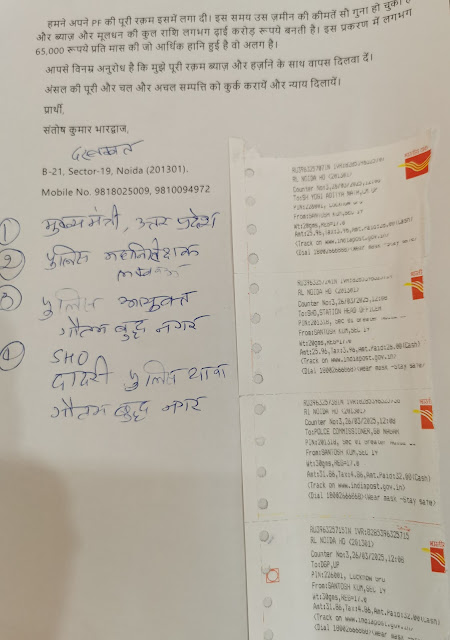 हमने अपने PF की पूरी रक़म इसमें लगा दी। इस समय उस ज़मीन की कीमतें सौ गुना हो चुकी
और ब्याज़ और मूलधन की कुल राशि लगभग ढ़ाई करोड़ रूपये बनती है। इस प्रकरण में लगभग
65,000 रूपये प्रति मास की जो आर्थिक हानि हुई है वो अलग है।
आपसे विनम्र अनुरोध है कि मुझे पूरी रक़म ब्याज़ और हर्ज़ाने के साथ वापस दिलवा दें।
अंसल की पूरी और चल और अचल सम्पत्ति को कुर्क करायें और न्याय दिलायें।
प्रार्थी,
संतोष कुमार भारद्वाज,
B-21, Sector-19, Noida (201301).
Mobile No. 9818025009, 9810094972
1 मुख्य मंत्री, उत्तर प्रदेश
2 पुलिस महानिदेशक
लखनऊ
3 पुलिस आयुक्त
गौतम बुद्ध नगर
4 SHO
दादरी पुलिस थाना
गौतम बुद्ध नगर
RL NOIDA HO (201301)
Counter No:3,26/03/2025,12:06
To:SH YOGI ADITYA NATH,CM UP
PIN:226001,
From:SANTOSH KUM,SEC 19
Wt:20gms,
Amt:25.96,Tax:3.96,Amt.Paid:26.00(Cash)
(Track on www.indiapost.gov.in)
(Dial 18002666868) (Wear mask -Stay safe)
RL NOIDA HO (201301)
Counter No:3,26/03/2025,12:06
To:SHO,STATION HEAD OFFICER
From:SANTOSH KUM,SEC 19
Wt:20gms,REG=17.0
Amt:25.96,Tax:3.96,Amt.Paid:26.00(Cash)
(Track on www.indiapost.gov.in)
(Dial 18002666868) (Wear mask -Stay safe)
RL NOIDA HO (201301)
Counter No:3,26/03/2025,12:06
To:POLICE COMMISSIONER,GB NAGAR
From:SANTOSH KUM,SEC 19
Wt:30gms,REG=17.0
Amt:31.86,Tax:4.86,Amt.Paid:32.00(Cash)
(Track on www.indiapost.gov.in)
(Dial 18002666868) (Wear mask -Stay safe)
RU396325715IN IVR:8285396325715
RL NOIDA HO (201301)
Counter No:3,26/03/2025,12:06
To:DGP,UP
PIN:226001, Lucknow GPO
From:SANTOSH KUM,SEC 19
Wt:30gms,REG=17.0
Amt:31.86,Tax:4.86,Amt.Paid:32.00(Cash)
(Track on www.indiapost.gov.in)
(Dial 18002666868) (Wear mask -Stay safe)